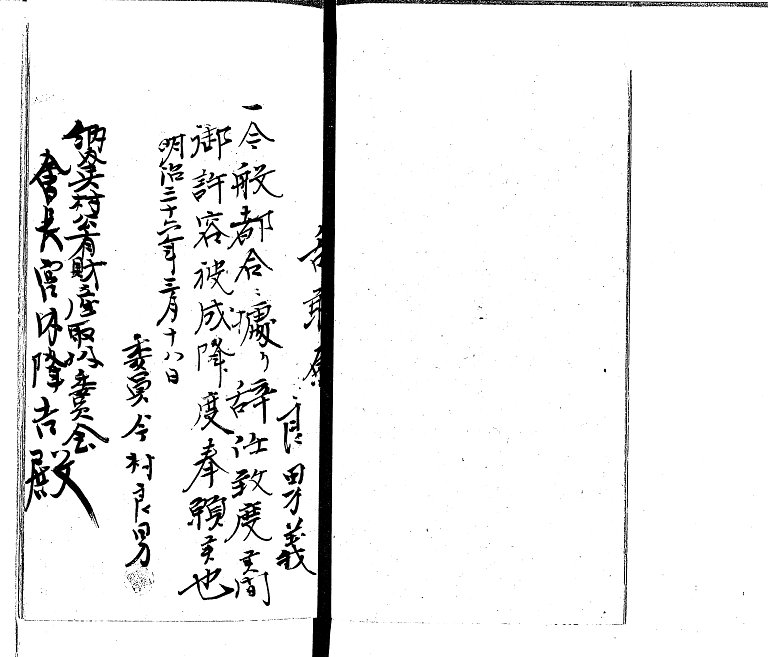 辞職願
良男義
一今般都合ニ據リ辞任致度候間
御許容被成降度奉願候也
明治三十六年三月十八日
委員今村良男
村公有財産取調委員会
会長宮城隆吉殿